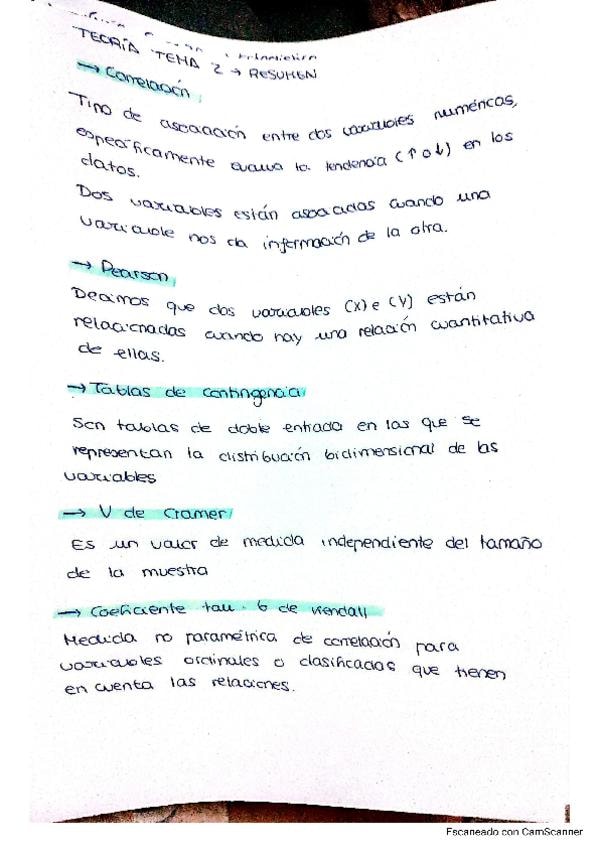 TEORÍA TEMA 2 → RESUMEN
→ Correlación
Tipo de asociación entre dos variables numéricas,
específicamente evalua la tendencia (↑ o ↓) en los
datos.
Dos variables están asociadas cuando una
variable nos da información de la otra.
→ Pearson
Decimos que dos variables (X) e (Y) están
relacionadas cuando hay una relación cuantitativa
de ellas.
→ Tablas de contingencia
Son tablas de doble entrada en las que se
representan la distribución bidimensional de las
variables
→ V de Cramer
Es un valor de medida independiente del tamaño
de la muestra
→ Coeficiente tau - b de Kendall
Medida no paramétrica de correlación para
variables ordinales o clasificadas que tienen
en cuenta las relaciones.
Escaneado con CamScanner